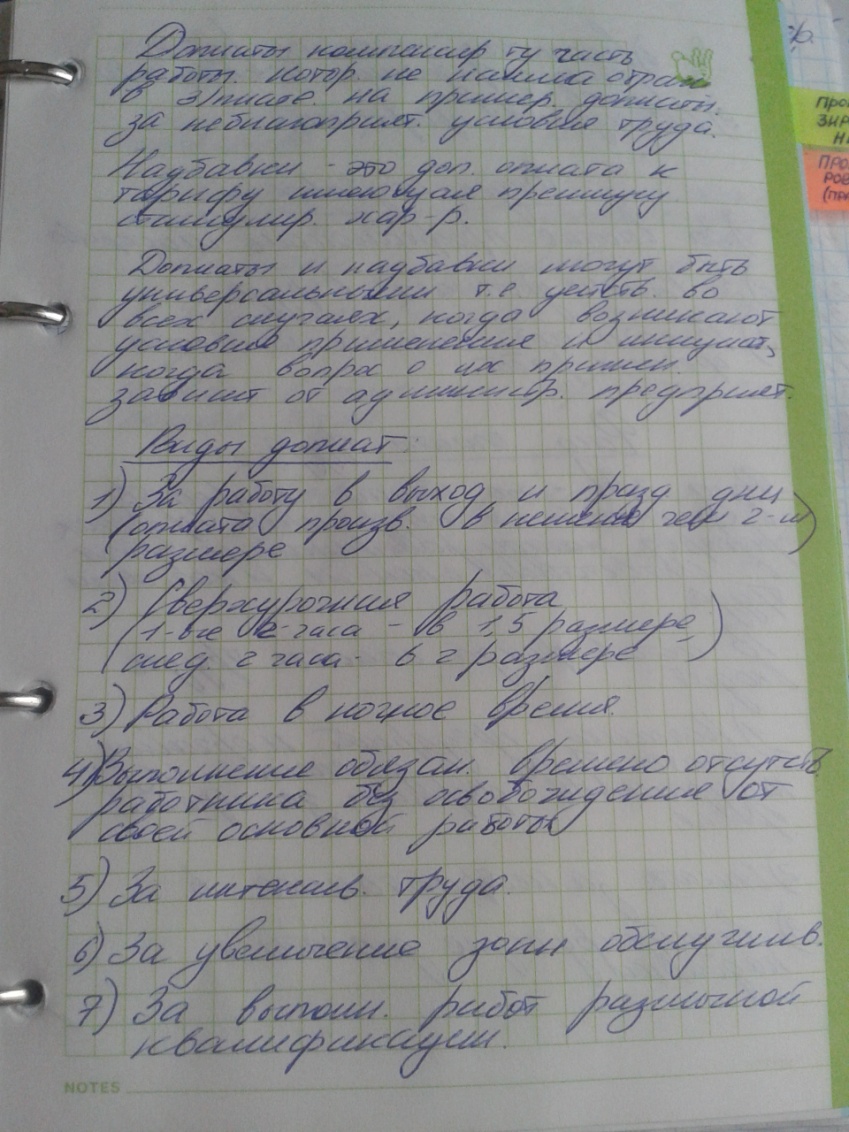 Доплаты компенсир ту часть
работы. котор не нашла отраж
в з/плате. на пример. доплаты.
за неблагоприят. условия труда.
Надбавки - это доп. оплата к
тарифу имеющая преимущ
стимулир. хар-р.
Доплаты и надбавки могут быть
универсальными т.е. действ. во
всех случаях, когда возникают
условия применения и
когда вопрос о их примен.
зависит от администр. предприят.
Виды доплат:
1) За работу в выход и празд дни
(оплата произв. в не менее чем 2-м)
размере
2) Сверхурочная работа
(1-вые 2-часа - в 1,5 размере,
след 2 часа - в 2 размере)
3) Работа в ночное время.
4) Выполнение обязан. времено отсутств
работника без освобождения от
своей основной работы
5) За интенсив. труда.
6) За увеличение зоны обслужив.
7) За выполн. работ различной
квалификации.
NOTES
ПРО
ЗНР
Н
ПРО
РОВ
(ПР